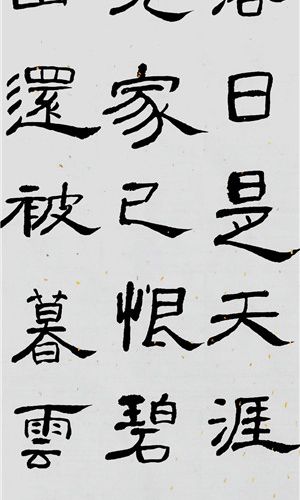 日是天涯
家已恨碧
還被暮雲